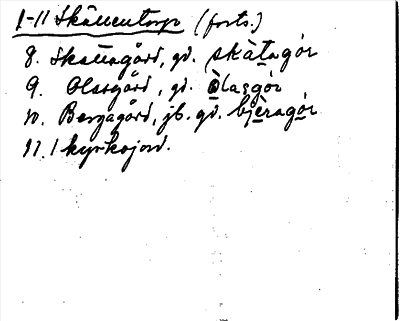 1-11 Skållentorp (forts.)
8. Skattagård, gd. skàtagór
9. Olasgård, gd. òlasgór
10. Bergagård, jb. gd. bjèragór
11. 1 kyrkojord.